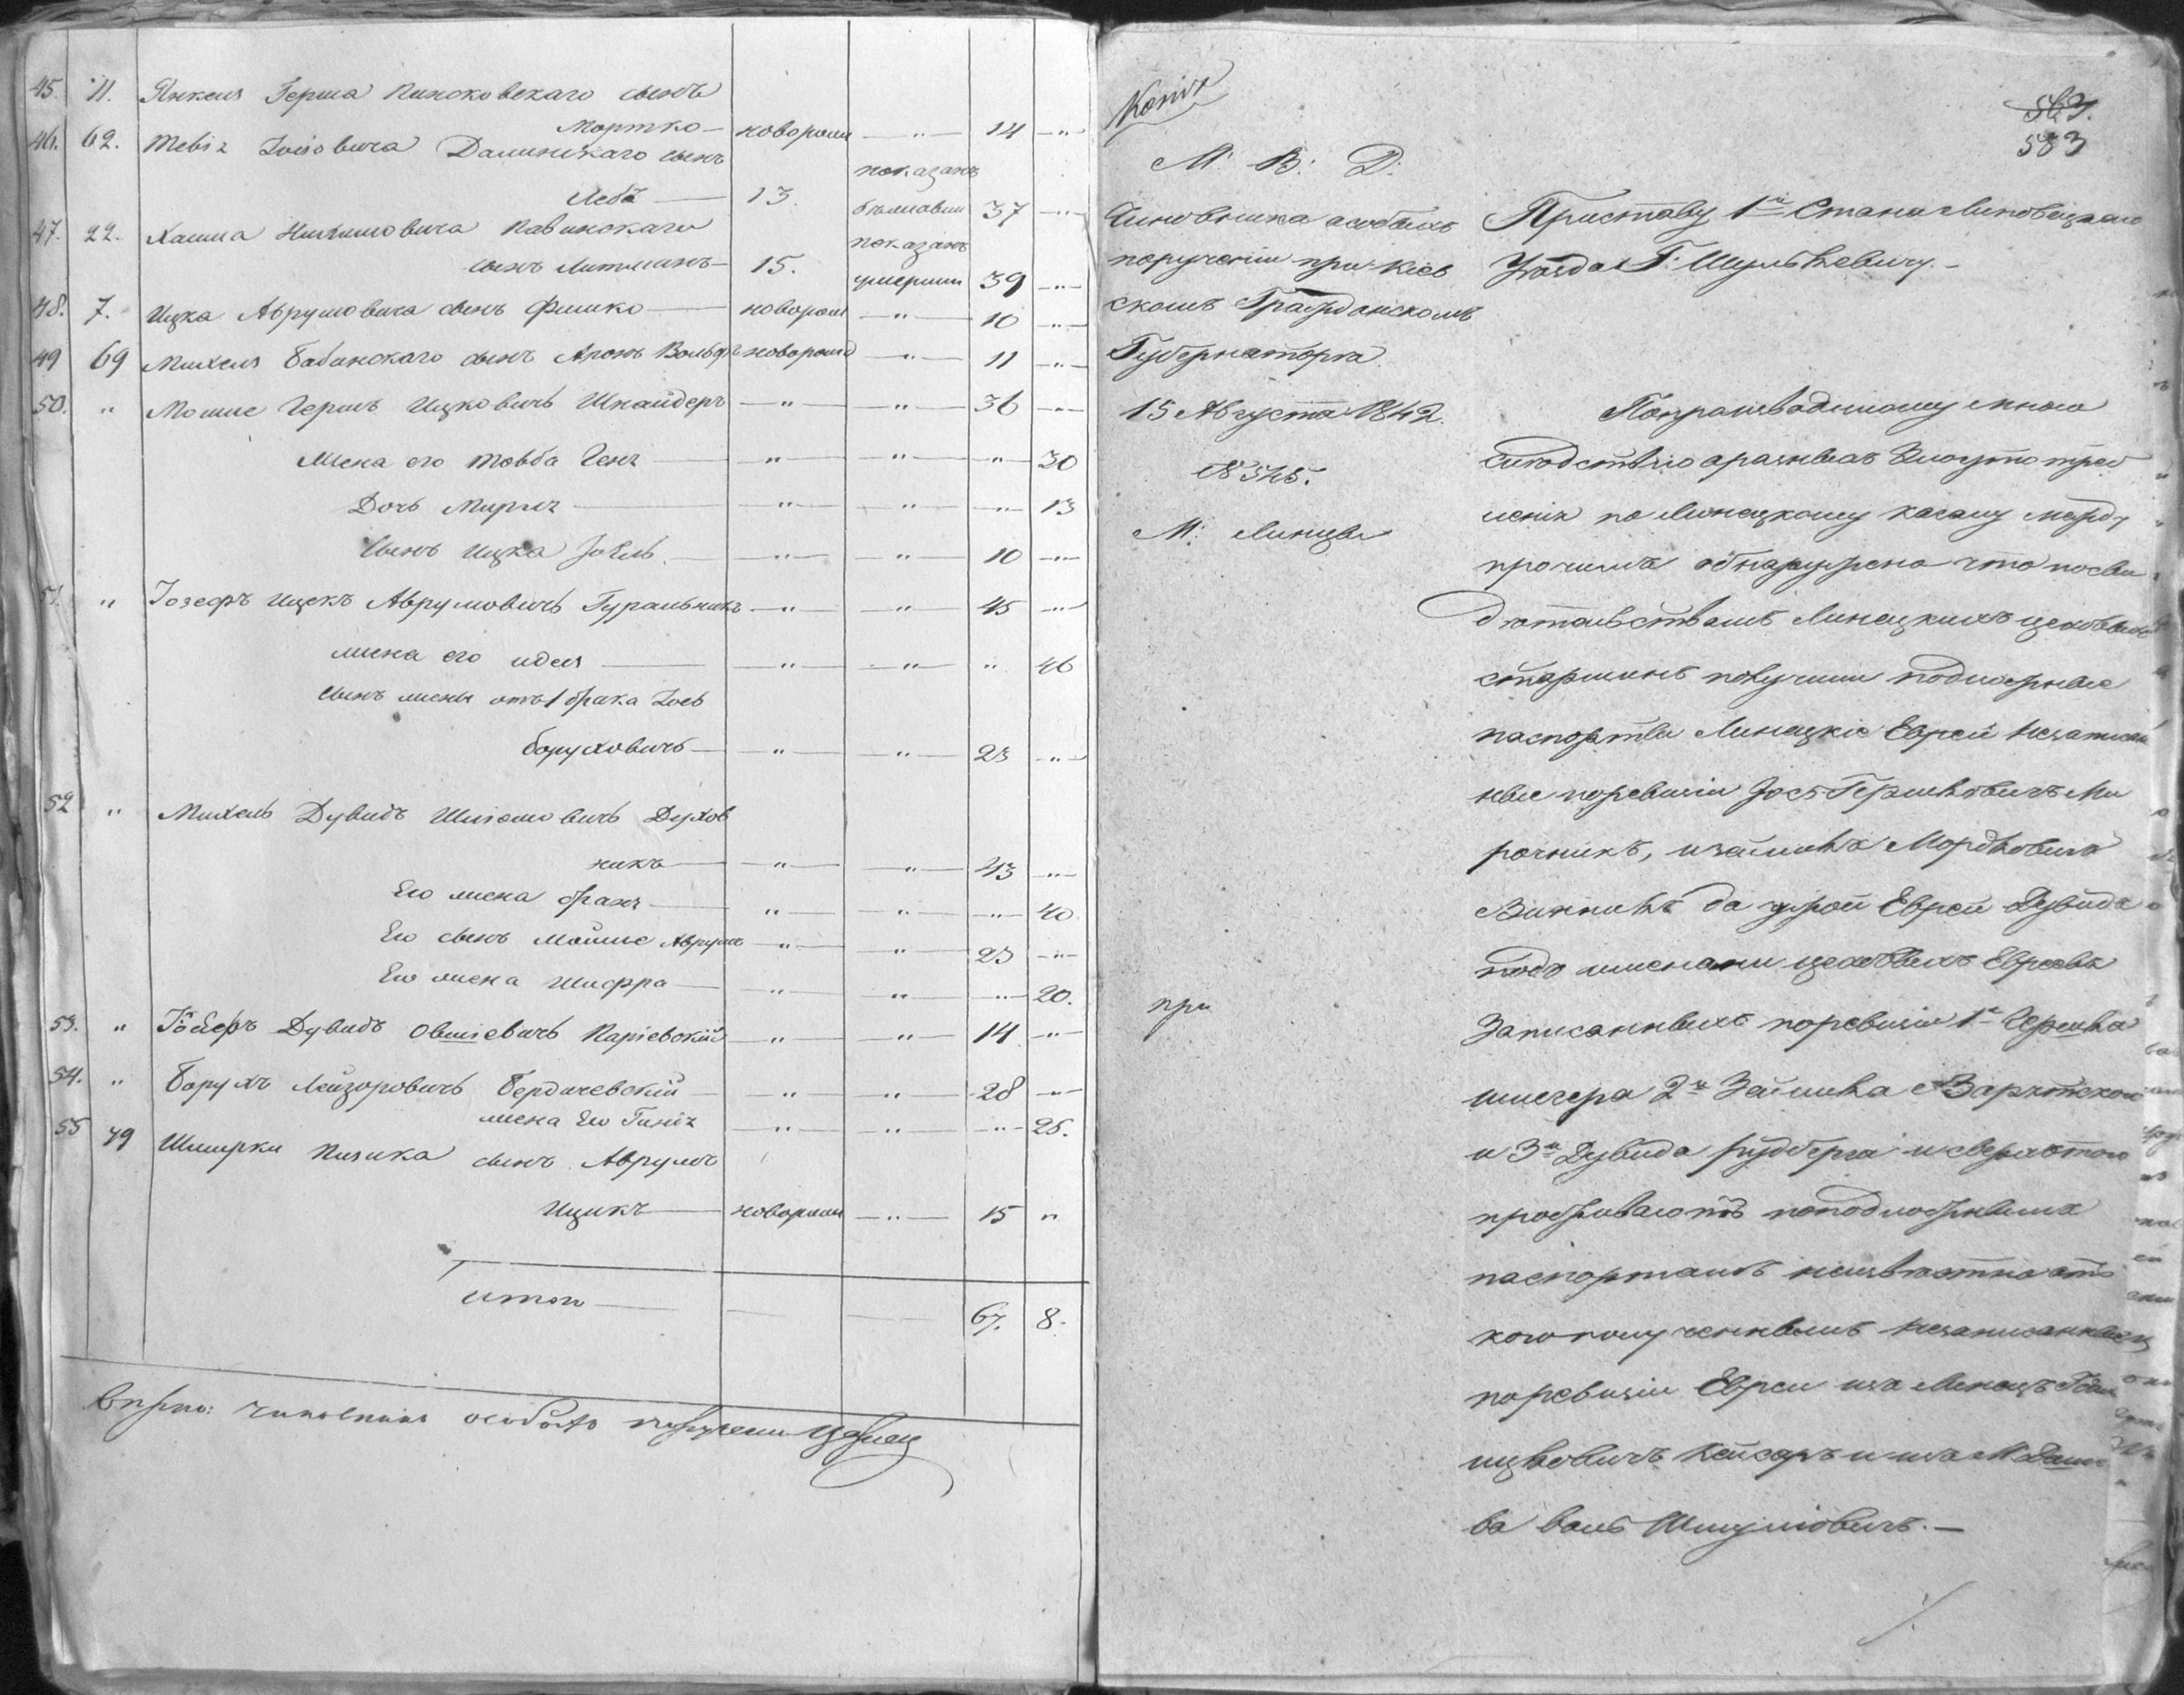 45. 11. Янкеля Герша Пинсковскаго сынъ
Мортко — новорожд — " — 14 — " —
46. 62. Тевія Іосіовича Далинскаго сынъ
Лейба — 13. показанъ бежавши 37 — " —
47. 22. Хаима Нихимовича Равинскаго
сынъ Литманъ — 15. показанъ умершим 39 — " —
48. 7. Ицка Аврумовича сынъ Фишко — новорож — " — 10 — " —
49 69 Михеля Бабинскаго сынъ Аронъ Вольфъ новорожд — " — 11 — " —
50. " Мошие Гершъ Ицковичъ Шнайдеръ — " — — " — 36 — " —
Жена его Товба Геня — " — " — " — 30
Дочь Мирля — " — " — " — 13
Сынъ Ицка Іоель. — " — " — 10 — " —
51. " Іозефъ Ицекъ Аврумовичъ Гуральникъ — " — " — 45 — " —
жена его идея — " — " — " 46
Сынъ жены отъ 1 брака Іось
Боруховичъ — " — " — 23 — " —
52 " Михель Дувидъ Шліомовичъ Духов
никъ — " — " — 43 — " —
Его жена Браня — " — " — " — 40
Его сынъ Мойше Аврумъ — " — " — 23 — " —
Его жена Шифра — " — " — " — 20.
53. " Іосефъ Дувидъ Овшіевичъ Паріевскій — " — " — 14 — " —
54. " Борухъ Лейзоровичъ Бердичевскій — " — " — 28 — " —
жена Его Гинія — " — " — " — 25.
55 49 Шмерки Пизика сынъ Аврумъ
Ицикъ — новорожд — " — 15 "
Итого — — — 67. 8.
Верно: чиновникъ особыхъ порученій
Копія
563.
583
М. В. Д.
Чиновника особыхъ
порученіи при Кіев
скомъ Гражданскомъ
Губернаторѣ.
15 Августа 1842.
№ 545.
М. Линцы
при
Приставу 1го Стана Липовецкаго
Уѣзда Г. Шулькевичу. —
Попроизводимому мною
слѣдствію оразныхъ Злоупотреб
леніи по Линецкому кагалу между
прочимъ обнаружено что посви
дѣтельствамъ Линецкихъ цеховыхъ
старшинъ получили подложные
паспорты Линецкіе Евреи незаписан
ные поревизіи Іось Гершковичъ Ми
рочникъ, изейликъ Мордковичъ
Винникъ да Еврей Дувидъ
подъ именами цеховыхъ Евреевъ
Записанныхъ поревизіи 1й Гершка
2й Зейлика
и 3й Дувида и сверхъ того
проживаютъ поподложнымъ
паспортамъ неизвѣстно отъ
кого полученнымъ незаписанные
поревизіи Евреи изъ Линецъ
ицковичъ Кейсаръ и изъ М Даш
ва